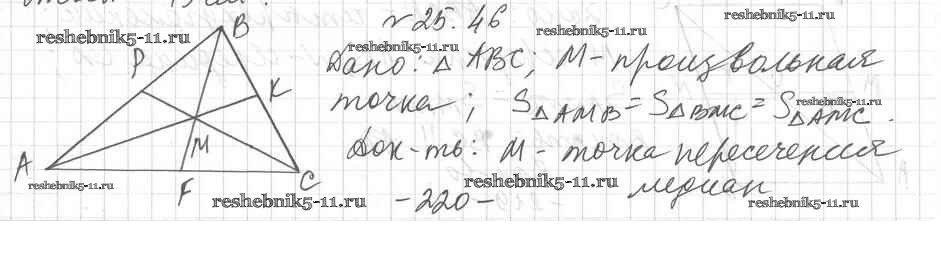 № 25.46
Дано: △ ABC; M - произвольная
точка; S△AMB = S△BMC = S△AMC.
Док-ть: M - точка пересечения
медиан
-220-
B
P
K
M
A
F
C
reshebnik5-11.ru
reshebnik5-11.ru
reshebnik5-11.ru
reshebnik5-11.ru
reshebnik5-11.ru
reshebnik5-11.ru
reshebnik5-11.ru
reshebnik5-11.ru
reshebnik5-11.ru